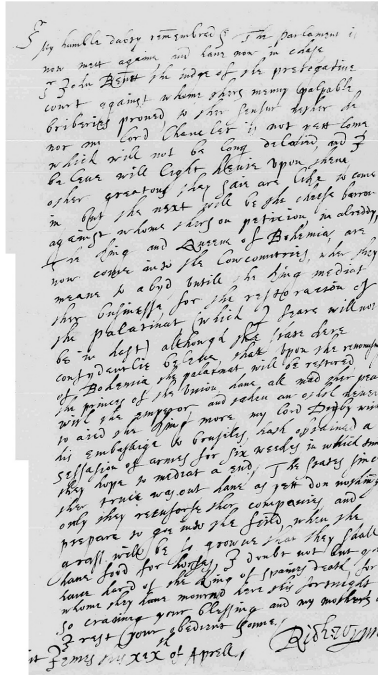 Sr
My humble duty remembred The Parlament is
now mett againe and have now in chase
Sr John Benett the iudge of the prerogative
court against whome thers meny palpable
briberies proued to ther sensur nether he
nor my lord Chanceler is not yett come
which will not be long delaied, and I
beleue will light heauie upon them
other greatons they saie are like to come
in but the next will be the cheefe barron
against whome thers on peticion in alreddy,
The King and Queene of Bohemia are
now come into the Lowcountries, wher they
meane to abyd untill the King mediat
ther businesse, for the restoration of
the palatinat (which I feare will not
be in hast) although the state here
confydentlie beleue, that upon the renouns
of Bohemia the palatinat will be restored
the princes of the Union have all mad ther peace
with the Emperor, and taken an othe never
to aied the King more, my lord Digby with
his embassage to Brusiles, hath obtained a
sessation of armes for six weekes in which time
they hope to mediat a end, The States since
ther truce was out have as yet don nothing
only they reenforse ther companies and
prepare to goe into the feild, when the
grass will be so growne that they shall
have food for horses, I doubt not but you
have hard of the King of Spaines death for
whome they have mourned here this fortnight
so craving your blessing and my mothers
I rest your obedient sonne,
th of Aprell,